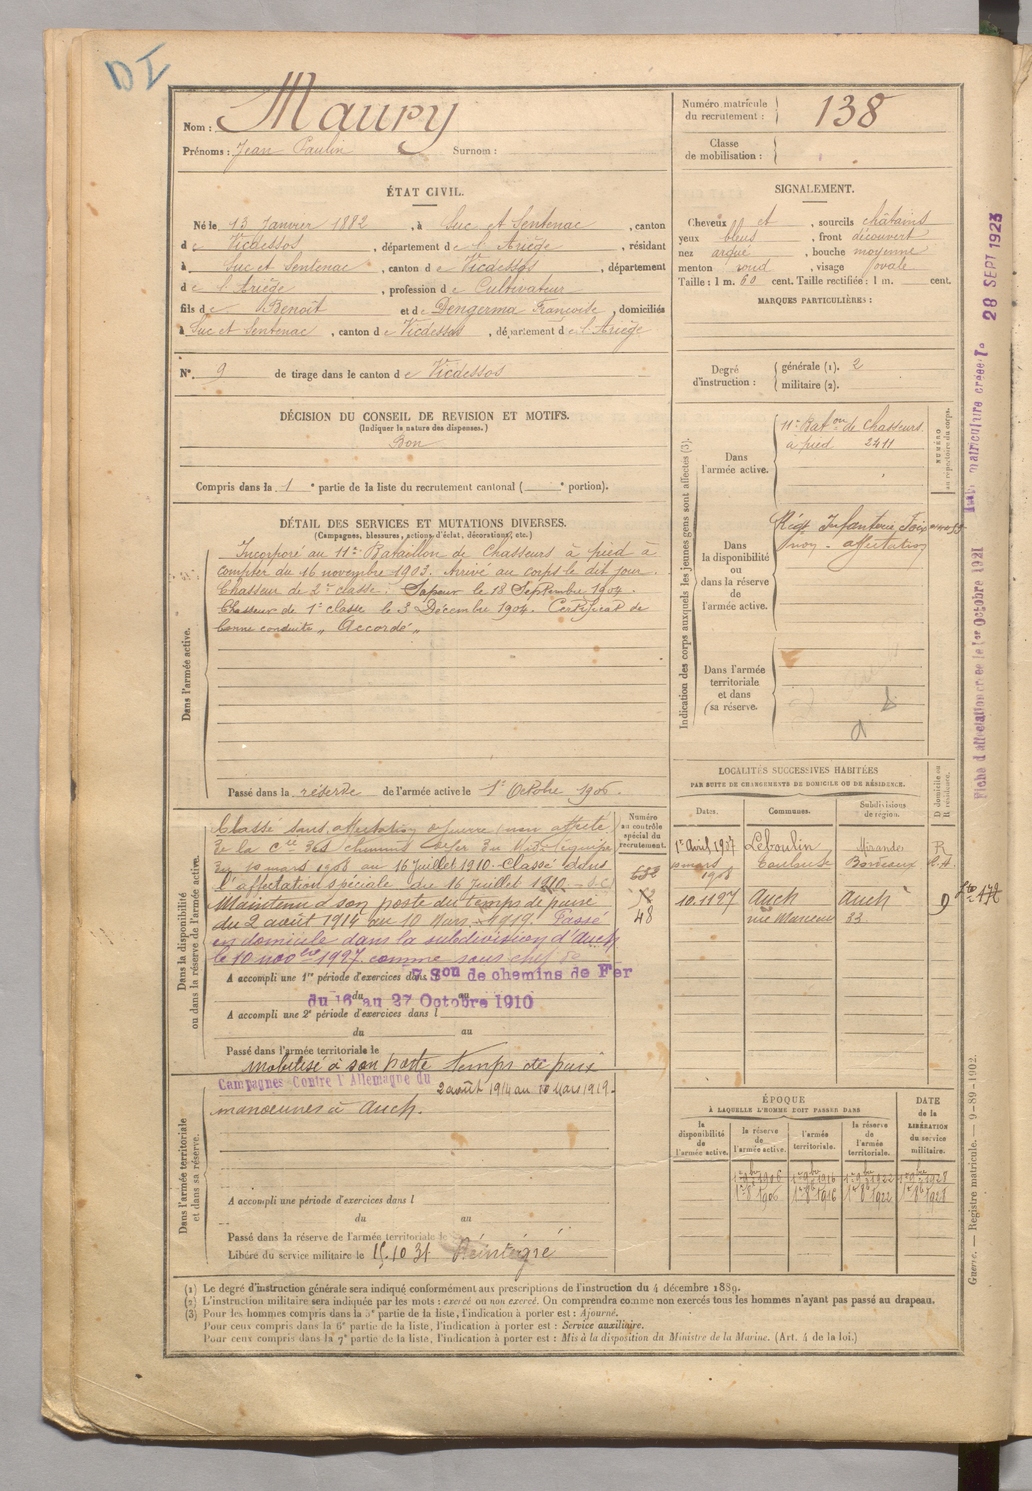 DI
Nom : Maury
Prénoms : Jean Paulin Surnom :
Numéro matricule du recrutement : 138
Classe de mobilisation :
ÉTAT CIVIL.
Né le 13 Janvier 1882, à Suc et Sentenac, canton
de Vicdessos, département de l'Ariège, résidant
à Suc et Sentenac, canton de Vicdessos, département
de l'Ariège, profession de Cultivateur
fils de Benoît et de Dengerma Françoise, domiciliés
à Suc et Sentenac, canton de Vicdessos, département de l'Ariège
N° 9 de tirage dans le canton de Vicdessos
SIGNALEMENT.
Cheveux et, sourcils châtains
yeux bleus, front découvert
nez arqué, bouche moyenne
menton rond, visage ovale
Taille : 1 m. 60 cent. Taille rectifiée : 1 m. cent.
MARQUES PARTICULIÈRES :
Degré d'instruction : générale (1). 2
militaire (2).
DÉCISION DU CONSEIL DE REVISION ET MOTIFS.
(Indiquer la nature des dispenses.)
Bon
Compris dans la 1e partie de la liste du recrutement cantonal ( e portion).
DÉTAIL DES SERVICES ET MUTATIONS DIVERSES.
(Campagnes, blessures, actions d'éclat, décorations, etc.)
Dans l'armée active.
Incorporé au 11e Bataillon de Chasseurs à pied à
compter du 16 novembre 1903. Arrivé au corps le dit jour.
Chasseur de 2e classe. Sapeur le 18 Septembre 1904.
Chasseur de 1e classe le 3 Décembre 1904. Certificat de
bonne conduite „ Accordé „
Passé dans la réserve de l'armée active le 1er Octobre 1906.
Indication des corps auxquels les jeunes gens sont affectés (3).
NUMÉRO au répertoire du corps.
Dans l'armée active.
11e Baton de Chasseurs
à pied 2411
Dans la disponibilité ou dans la réserve de l'armée active.
Régt Infanterie Foix
non-affectation
Dans l'armée territoriale et dans sa réserve.
Dans la disponibilité ou dans la réserve de l'armée active.
Classé sans affectation
de la Cie des chemins de fer du Midi
du 10 mars 1908 au 16 Juillet 1910. Classé dans
l'affectation spéciale du 16 Juillet 1910
Maintenu à son poste du temps de paix
du 2 août 1914 au 10 Mars 1919. Passé
en domicile dans la subdivision d'Auch
le 10 novbre 1927 comme sous chef de
A accompli une 1re période d'exercices dans 7 Son de chemins de Fer
du 16 au 27 Octobre 1910
A accompli une 2e période d'exercices dans l
du au
Passé dans l'armée territoriale le
mobilisé à son poste temps de paix
Numéro au contrôle spécial du recrutement.
48
LOCALITÉS SUCCESSIVES HABITÉES
PAR SUITE DE CHANGEMENTS DE DOMICILE OU DE RÉSIDENCE.
Dates. Communes. Subdivisions de région. D domicile ou R résidence.
1er Avril 1907 Leboulin Mirande R
mars 1908 Toulouse Bordeaux
10.11 27 Auch Auch D
33
Dans l'armée territoriale et dans sa réserve.
Campagnes Contre l'Allemagne du 2 août 1914 au 10 Mars 1919.
manoeuvres à Auch.
A accompli une période d'exercices dans l
du au
Passé dans la réserve de l'armée territoriale le
Libéré du service militaire le 15.10 31 Réintégré
ÉPOQUE
À LAQUELLE L'HOMME DOIT PASSER DANS
la disponibilité de l'armée active.
la réserve de l'armée active.
l'armée territoriale.
la réserve de l'armée territoriale.
DATE de la LIBÉRATION du service militaire.
1er 9bre 1906 1er 9bre 1916 1er 9bre 1922 1er 9bre 1928
1er 8bre 1906 1er 8bre 1916 1er 8bre 1922 1er 8bre 1928
(1) Le degré d'instruction générale sera indiqué conformément aux prescriptions de l'instruction du 4 décembre 1889.
(2) L'instruction militaire sera indiquée par les mots : exercé ou non exercé. On comprendra comme non exercés tous les hommes n'ayant pas passé au drapeau.
(3) Pour les hommes compris dans la 5e partie de la liste, l'indication à porter est : Ajourné.
Pour ceux compris dans la 6e partie de la liste, l'indication à porter est : Service auxiliaire.
Pour ceux compris dans la 7e partie de la liste, l'indication à porter est : Mis à la disposition du Ministre de la Marine. (Art. 4 de la loi.)
Fiche d'affectation créée le 1er Octobre 1921
matriculaire créée le 28 SEPT 1923
Guerre. — Registre matricule. — 9-89-1902.